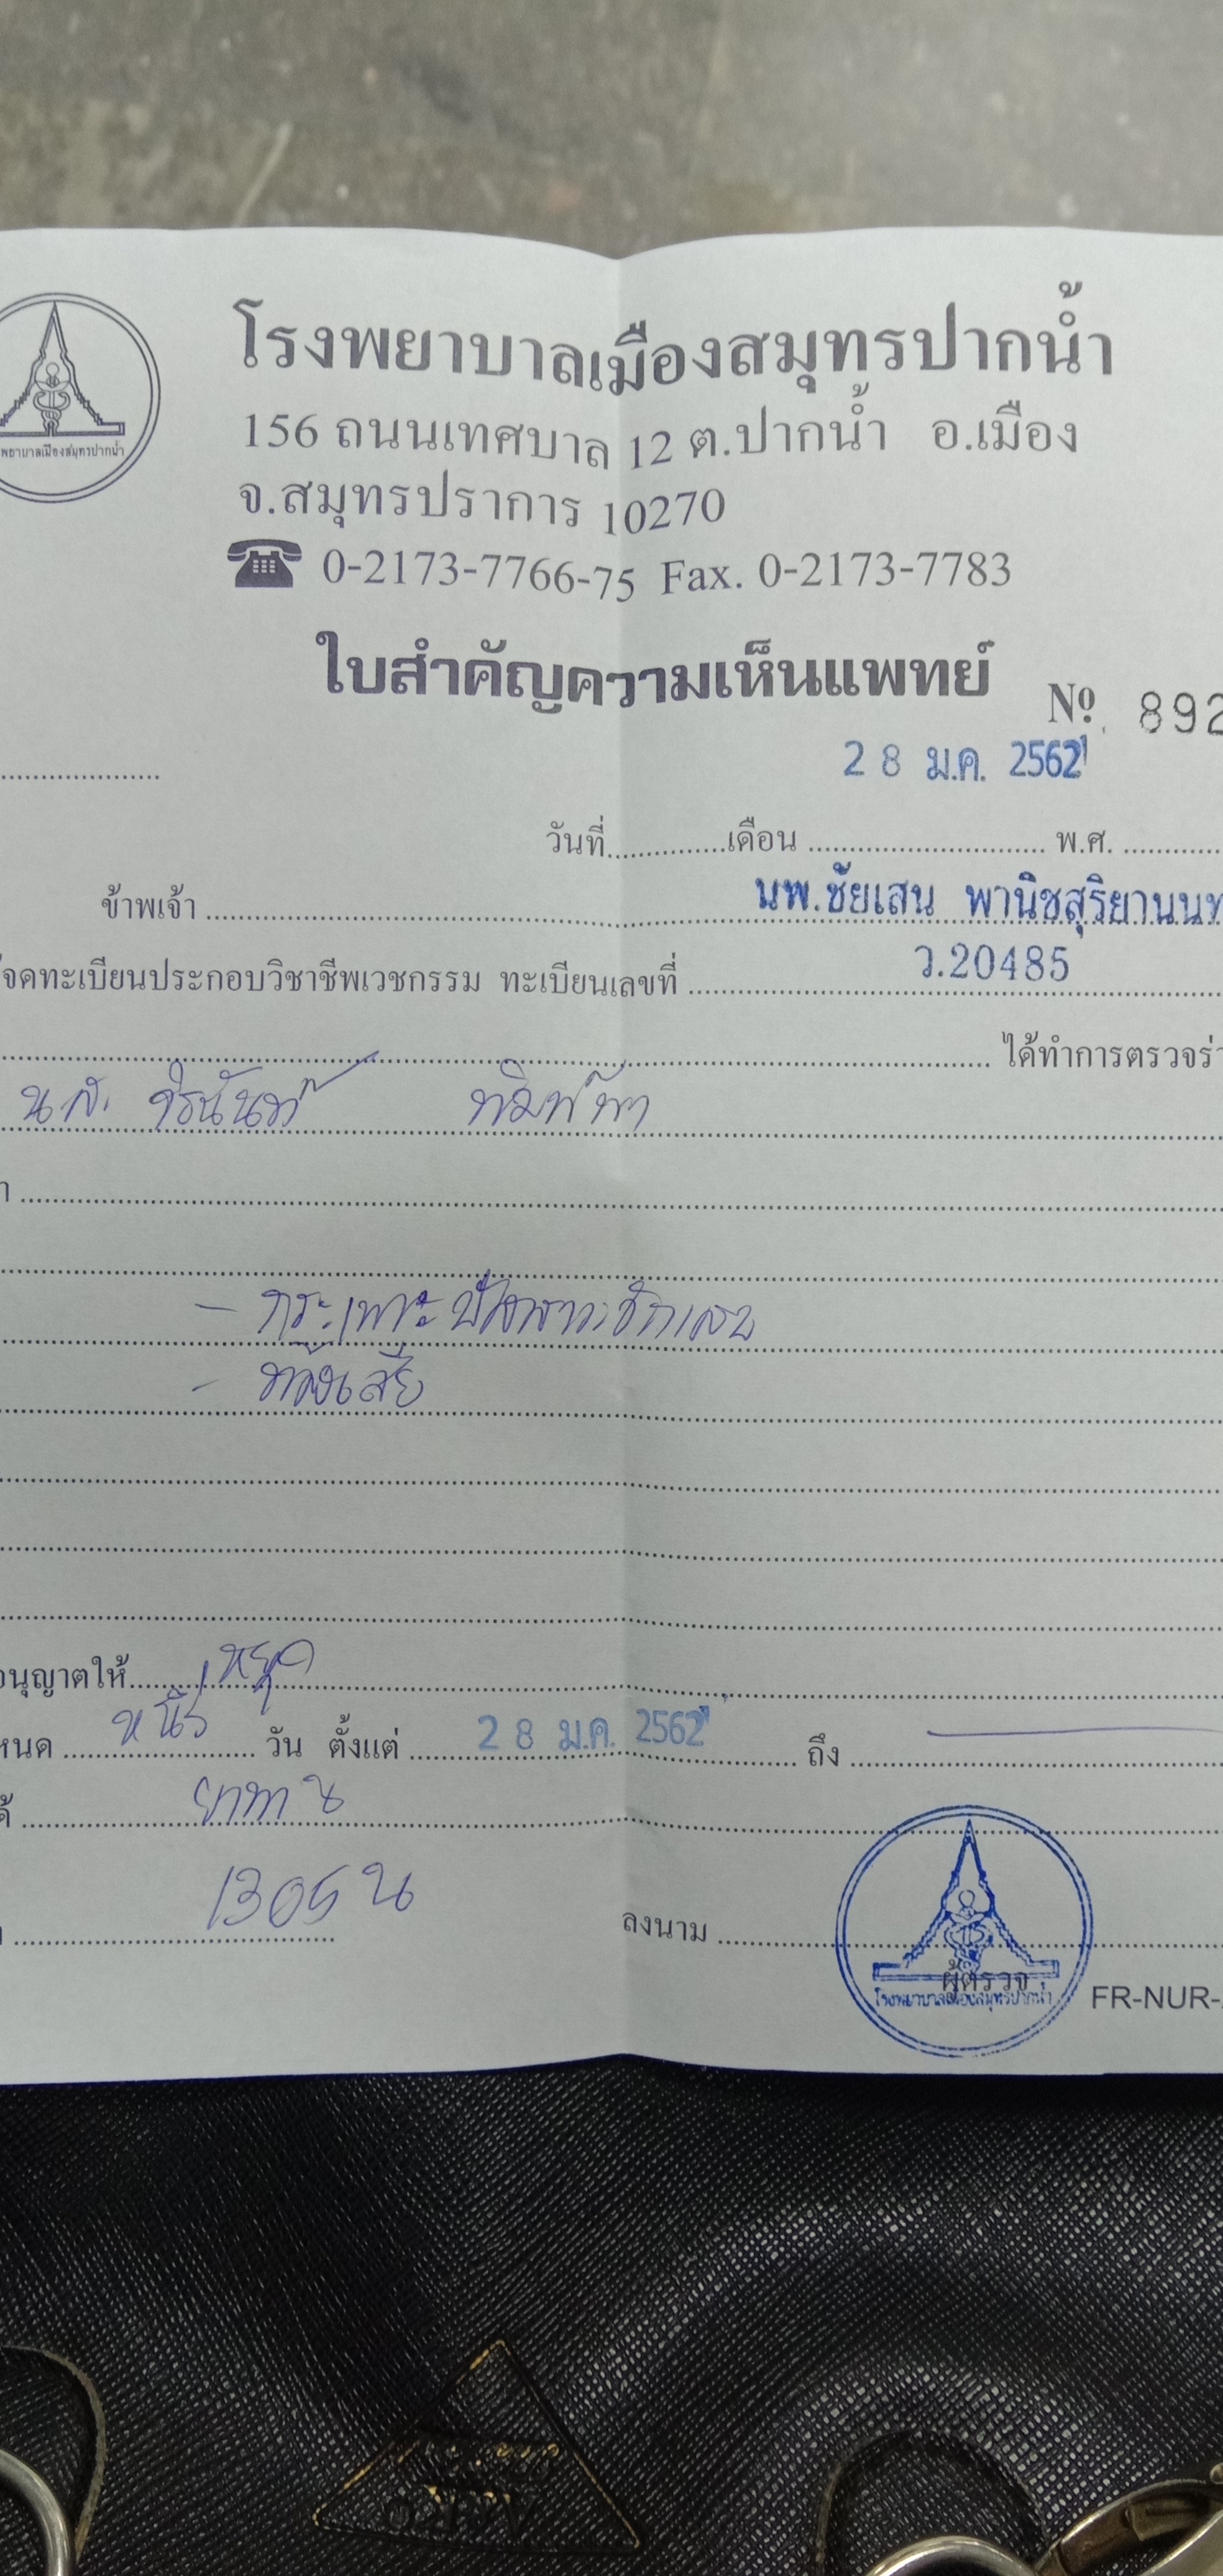 โรงพยาบาลเมืองสมุทรปากน้ำ
156 ถนนเทศบาล 12 ต.ปากน้ำ อ.เมือง
พยาบาลเมืองสมุทรปากน้ำ
จ.สมุทรปราการ 10270
☎ 0-2173-7766-75 Fax. 0-2173-7783
ใบสำคัญความเห็นแพทย์
Nọ. 892
28 ม.ค. 2562
วันที่..............เดือน............................ พ.ศ. ............
ข้าพเจ้า ........ นพ.ชัยเสน พานิชสุริยานนท
จดทะเบียนประกอบวิชาชีพเวชกรรม ทะเบียนเลขที่ ........ ว.20485
........ ได้ทำการตรวจร่
น.ส. จิรนันท์ พิมพ์พา
- กระเพาะปัสสาวะอักเสบ
- ท้องเสีย
อนุญาตให้........ หยุด
หนด ........ หนึ่ง ........ วัน ตั้งแต่ ........ 28 ม.ค. 2562 ........ ถึง ........
ด้ ........ ยาทาน
1305 น
ลงนาม ........
ผู้ตรวจ
โรงพยาบาลเมืองสมุทรปากน้ำ
FR-NUR-